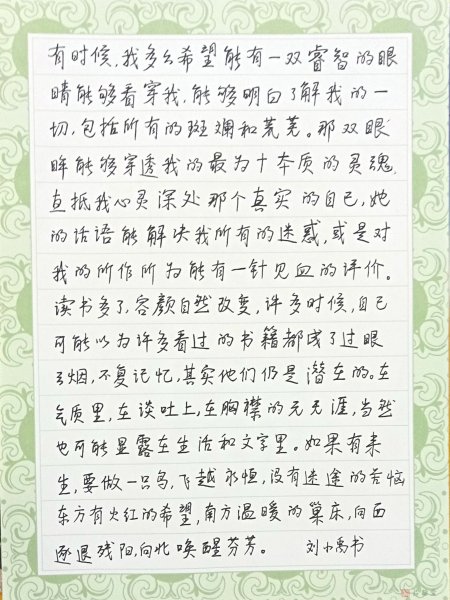 有时候,我多么希望能有一双睿智的眼
睛能够看穿我,能够明白了解我的一
切,包括所有的斑斓和荒芜。那双眼
眸能够穿透我的最为十本质的灵魂,
直抵我心灵深处那个真实的自己,她
的话语能解决我所有的迷惑,或是对
我的所作所为能有一针见血的评价。
读书多了,容颜自然改变,许多时候,自己
可能以为许多看过的书籍都成了过眼
云烟,不复记忆,其实他们仍是潜在的。在
气质里,在谈吐上,在胸襟的无无涯,当然
也可能显露在生活和文字里。如果有来
生,要做一只鸟,飞越永恒,没有迷途的苦恼
东方有火红的希望,南方温暖的巢床,向西
逐退残阳,向北唤醒芬芳。 刘小禹书